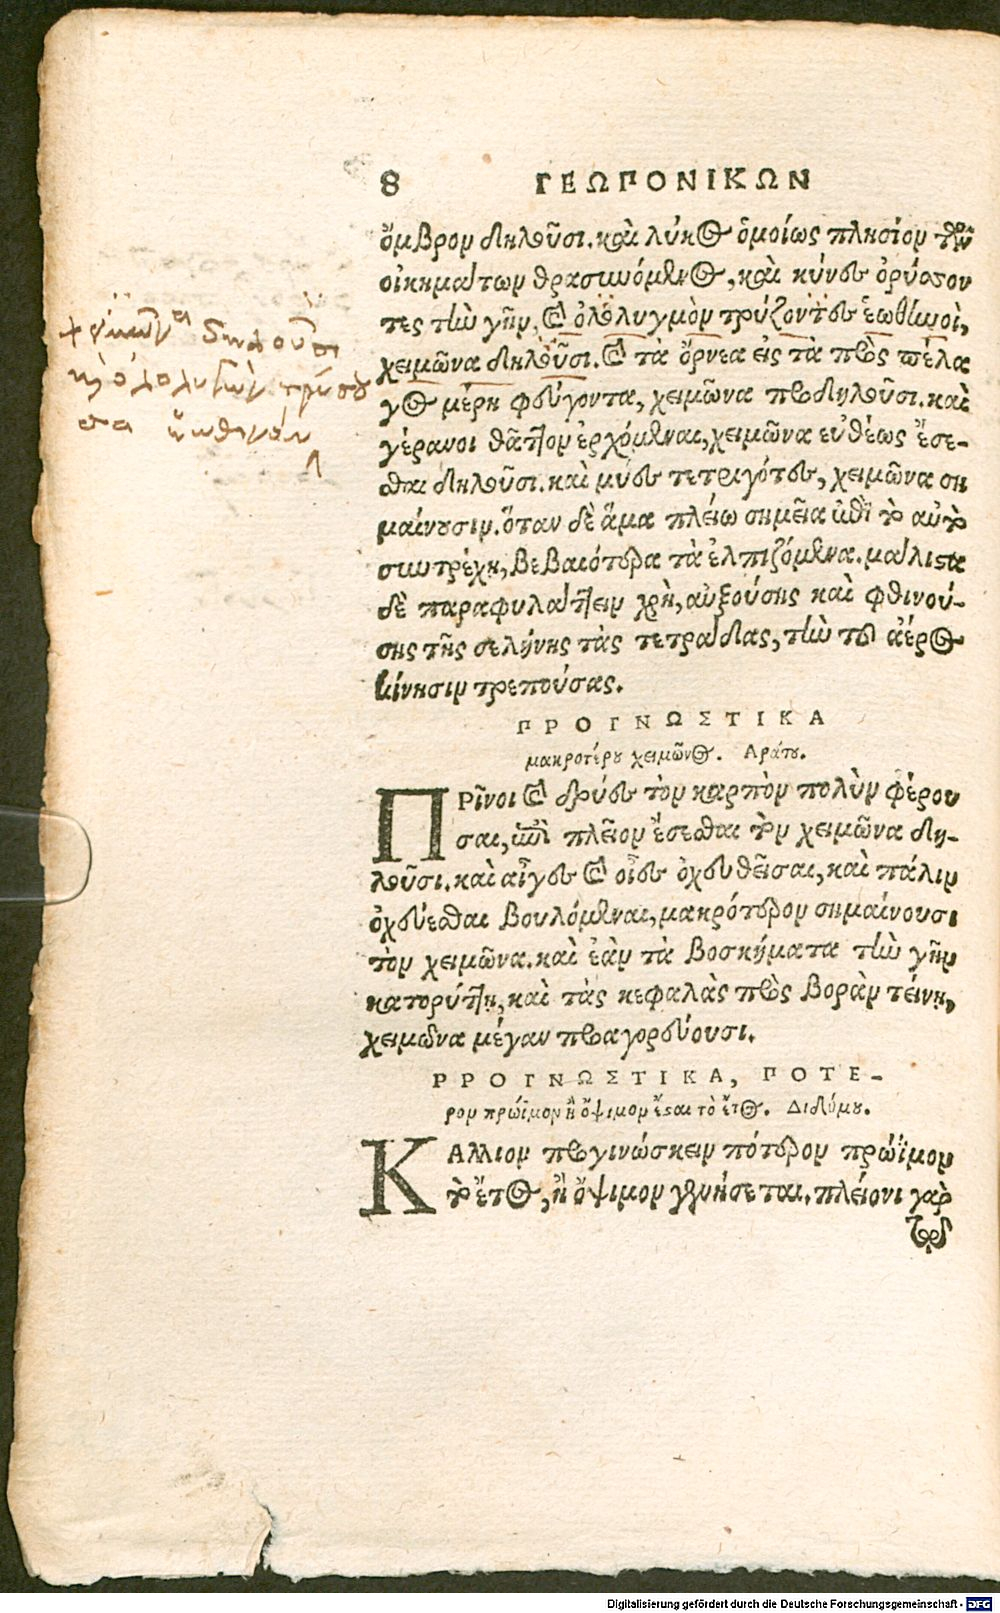 8 ΓΕΩΠΟΝΙΚΩΝ
ὄμβρον δηλοῦσι. καὶ λύκος ὁμοίως πλησίον τῶν
οἰκημάτων θρασυνόμενος, καὶ κύνες ὀρύσσον
τες τὴν γῆν, καὶ ὀλολυγμὸν τρύζοντες ἑωθινοὶ,
χειμῶνα δηλοῦσι. καὶ τὰ ὄρνεα εἰς τὰ πρὸς πέλα
γος μέρη φεύγοντα, χειμῶνα προδηλοῦσι. καὶ
γέρανοι θᾶττον ἐρχόμεναι, χειμῶνα εὐθέως ἔσε-
σθαι δηλοῦσι. καὶ μύες τετριγότες, χειμῶνα ση
μαίνουσιν. ὅταν δὲ ἅμα πλείω σημεῖα ἐπὶ τὸ αὐτὸ
συντρέχῃ, βεβαιότερα τὰ ἐλπιζόμενα. μάλιστα
δὲ παραφυλάττειν χρὴ, αὐξούσης καὶ φθινού-
σης τῆς σελήνης τὰς τετράδας, τὴν τοῦ ἀέρος
κίνησιν τρεπούσας.
ΠΡΟΓΝΩΣΤΙΚΑ
μακροτέρου χειμῶνος. Αράτου.
ΠΡῖνοι καὶ δρύες τὸν καρπὸν πολὺν φέρου
σαι, ἐπὶ πλεῖον ἔσεσθαι τὸν χειμῶνα δη-
λοῦσι. καὶ αἶγες καὶ οἶες ὀχευθεῖσαι, καὶ πάλιν
ὀχεύεσθαι βουλόμεναι, μακρότερον σημαίνουσι
τὸν χειμῶνα. καὶ ἐὰν τὰ βοσκήματα τὴν γῆν
κατορύττῃ, καὶ τὰς κεφαλὰς πρὸς βορὰν τείνῃ,
χειμῶνα μέγαν προαγορεύουσι.
ΡΡΟΓΝΩΣΤΙΚΑ, ΠΟΤΕ-
ρον πρώϊμον ἢ ὄψιμον ἔσται τὸ ἔτος. Διδύμου.
ΚΑλλιον προγινώσκειν πότερον πρώϊμον
τὸ ἔτος, ἢ ὄψιμον γενήσεται. πλείονι γὰρ
Digitalisierung gefördert durch die Deutsche Forschungsgemeinschaft - DFG